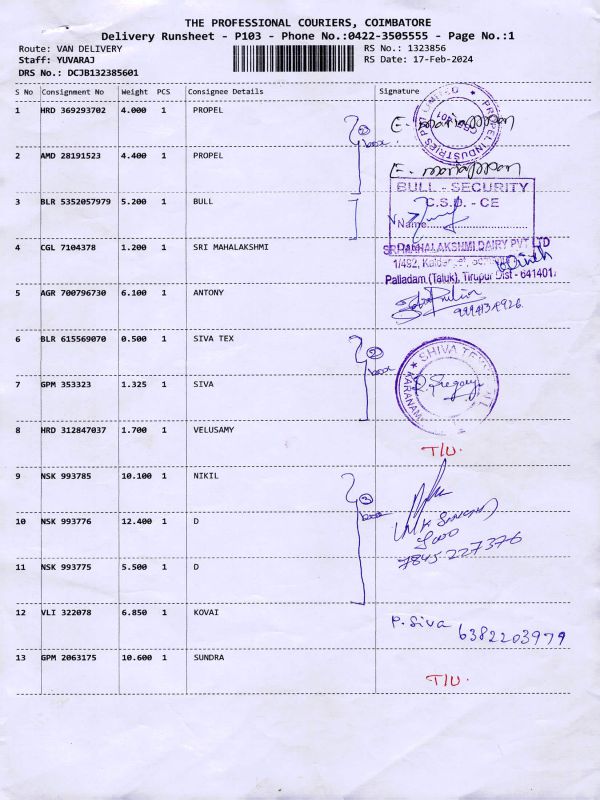 THE PROFESSIONAL COURIERS, COIMBATORE
Delivery Runsheet - P103 - Phone No.:0422-3505555 - Page No.:1
Route: VAN DELIVERY RS No.: 1323856
Staff: YUVARAJ RS Date: 17-Feb-2024
DRS No.: DCJB132385601
S No Consignment No Weight PCS Consignee Details Signature
1 HRD 369293702 4.000 1 PROPEL
PROPEL INDUSTRIES
2 box
2 AMD 28191523 4.400 1 PROPEL
3 BLR 5352057979 5.200 1 BULL
BULL - SECURITY
C.S.D. - CE
Name
4 CGL 7104378 1.200 1 SRI MAHALAKSHMI
SRI MAHALAKSHMI DAIRY PVT LTD
1/492,
Palladam (Taluk), Tirupur Dist - 641401
5 AGR 700796730 6.100 1 ANTONY
6 BLR 615569070 0.500 1 SIVA TEX
2 box
SHIVA
KARANAM
7 GPM 353323 1.325 1 SIVA
8 HRD 312847037 1.700 1 VELUSAMY
T/U.
9 NSK 993785 10.100 1 NIKIL
3 box
10 NSK 993776 12.400 1 D
7845227376
11 NSK 993775 5.500 1 D
12 VLI 322078 6.850 1 KOVAI
P. Siva 6382203979
13 GPM 2063175 10.600 1 SUNDRA
T/U.